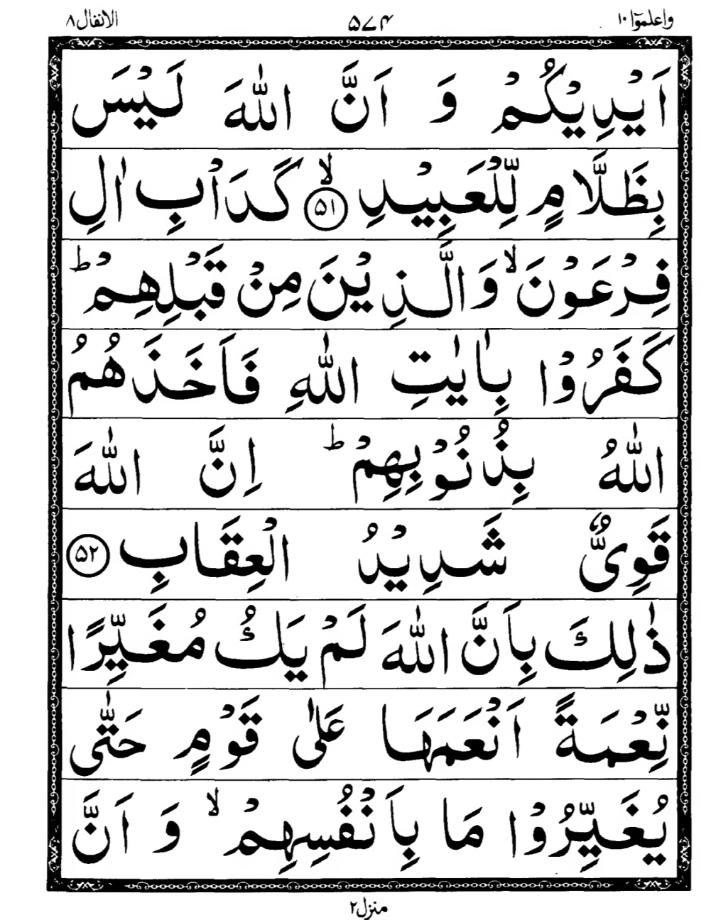 واعلموا ۱۰ ۵۷۴ الانفال ۸
اَيْدِيْكُمْ وَ اَنَّ اللّٰهَ لَيْسَ
بِظَلَّامٍ لِّلْعَبِيْدِ ۙ﴿۵۱﴾ كَدَاْبِ اٰلِ
فِرْعَوْنَ ۙ وَالَّذِيْنَ مِنْ قَبْلِهِمْ ؕ
كَفَرُوْا بِاٰيٰتِ اللّٰهِ فَاَخَذَهُمُ
اللّٰهُ بِذُنُوْبِهِمْ ؕ اِنَّ اللّٰهَ
قَوِيٌّ شَدِيْدُ الْعِقَابِ ﴿۵۲﴾
ذٰلِكَ بِاَنَّ اللّٰهَ لَمْ يَكُ مُغَيِّرًا
نِّعْمَةً اَنْعَمَهَا عَلٰى قَوْمٍ حَتّٰى
يُغَيِّرُوْا مَا بِاَنْفُسِهِمْ ۙ وَ اَنَّ
منزل ۲